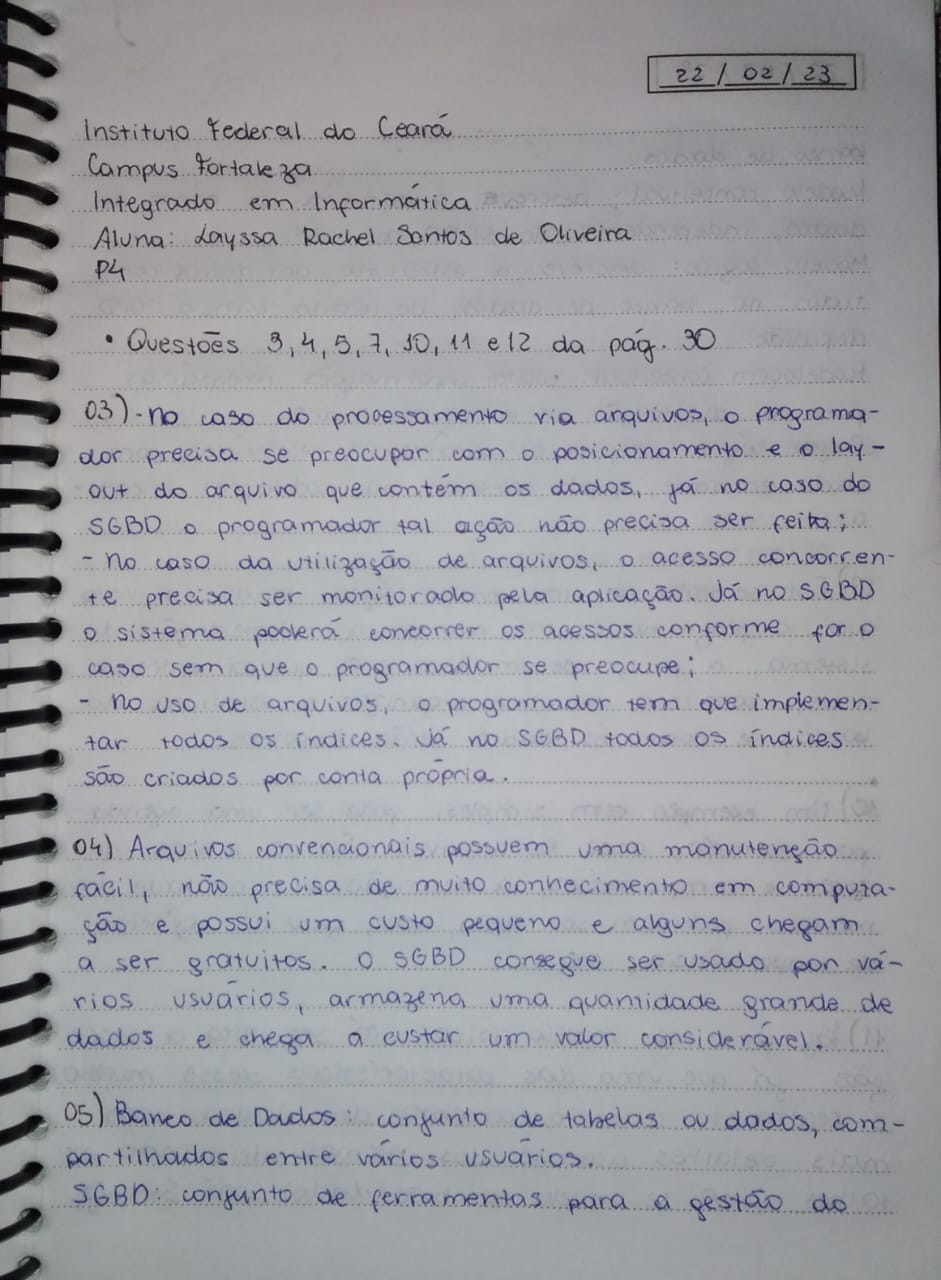 22 / 02 / 23
Instituto Federal do Ceará
Campus Fortaleza
Integrado em Informática
Aluna: Layssa Rachel Santos de Oliveira
P4
• Questões 3, 4, 5, 7, 10, 11 e 12 da pág. 30
03) - No caso do processamento via arquivos, o programa-
dor precisa se preocupar com o posicionamento e o lay-
out do arquivo que contém os dados, já no caso do
SGBD o programador tal ação não precisa ser feita;
- No caso da utilização de arquivos, o acesso concorren-
te precisa ser monitorado pela aplicação. Já no SGBD
o sistema poderá concorrer os acessos conforme for o
caso sem que o programador se preocupe;
- No uso de arquivos, o programador tem que implemen-
tar todos os índices. Já no SGBD todos os índices
são criados por conta própria.
04) Arquivos convencionais possuem uma manutenção
fácil, não precisa de muito conhecimento em computa-
ção e possui um custo pequeno e alguns chegam
a ser gratuitos. O SGBD consegue ser usado por vá-
rios usuários, armazena uma quanidade grande de
dados e chega a custar um valor considerável.
05) Banco de Dados: conjunto de tabelas ou dados, com-
partilhados entre vários usuários.
SGBD: conjunto de ferramentas para a gestão do